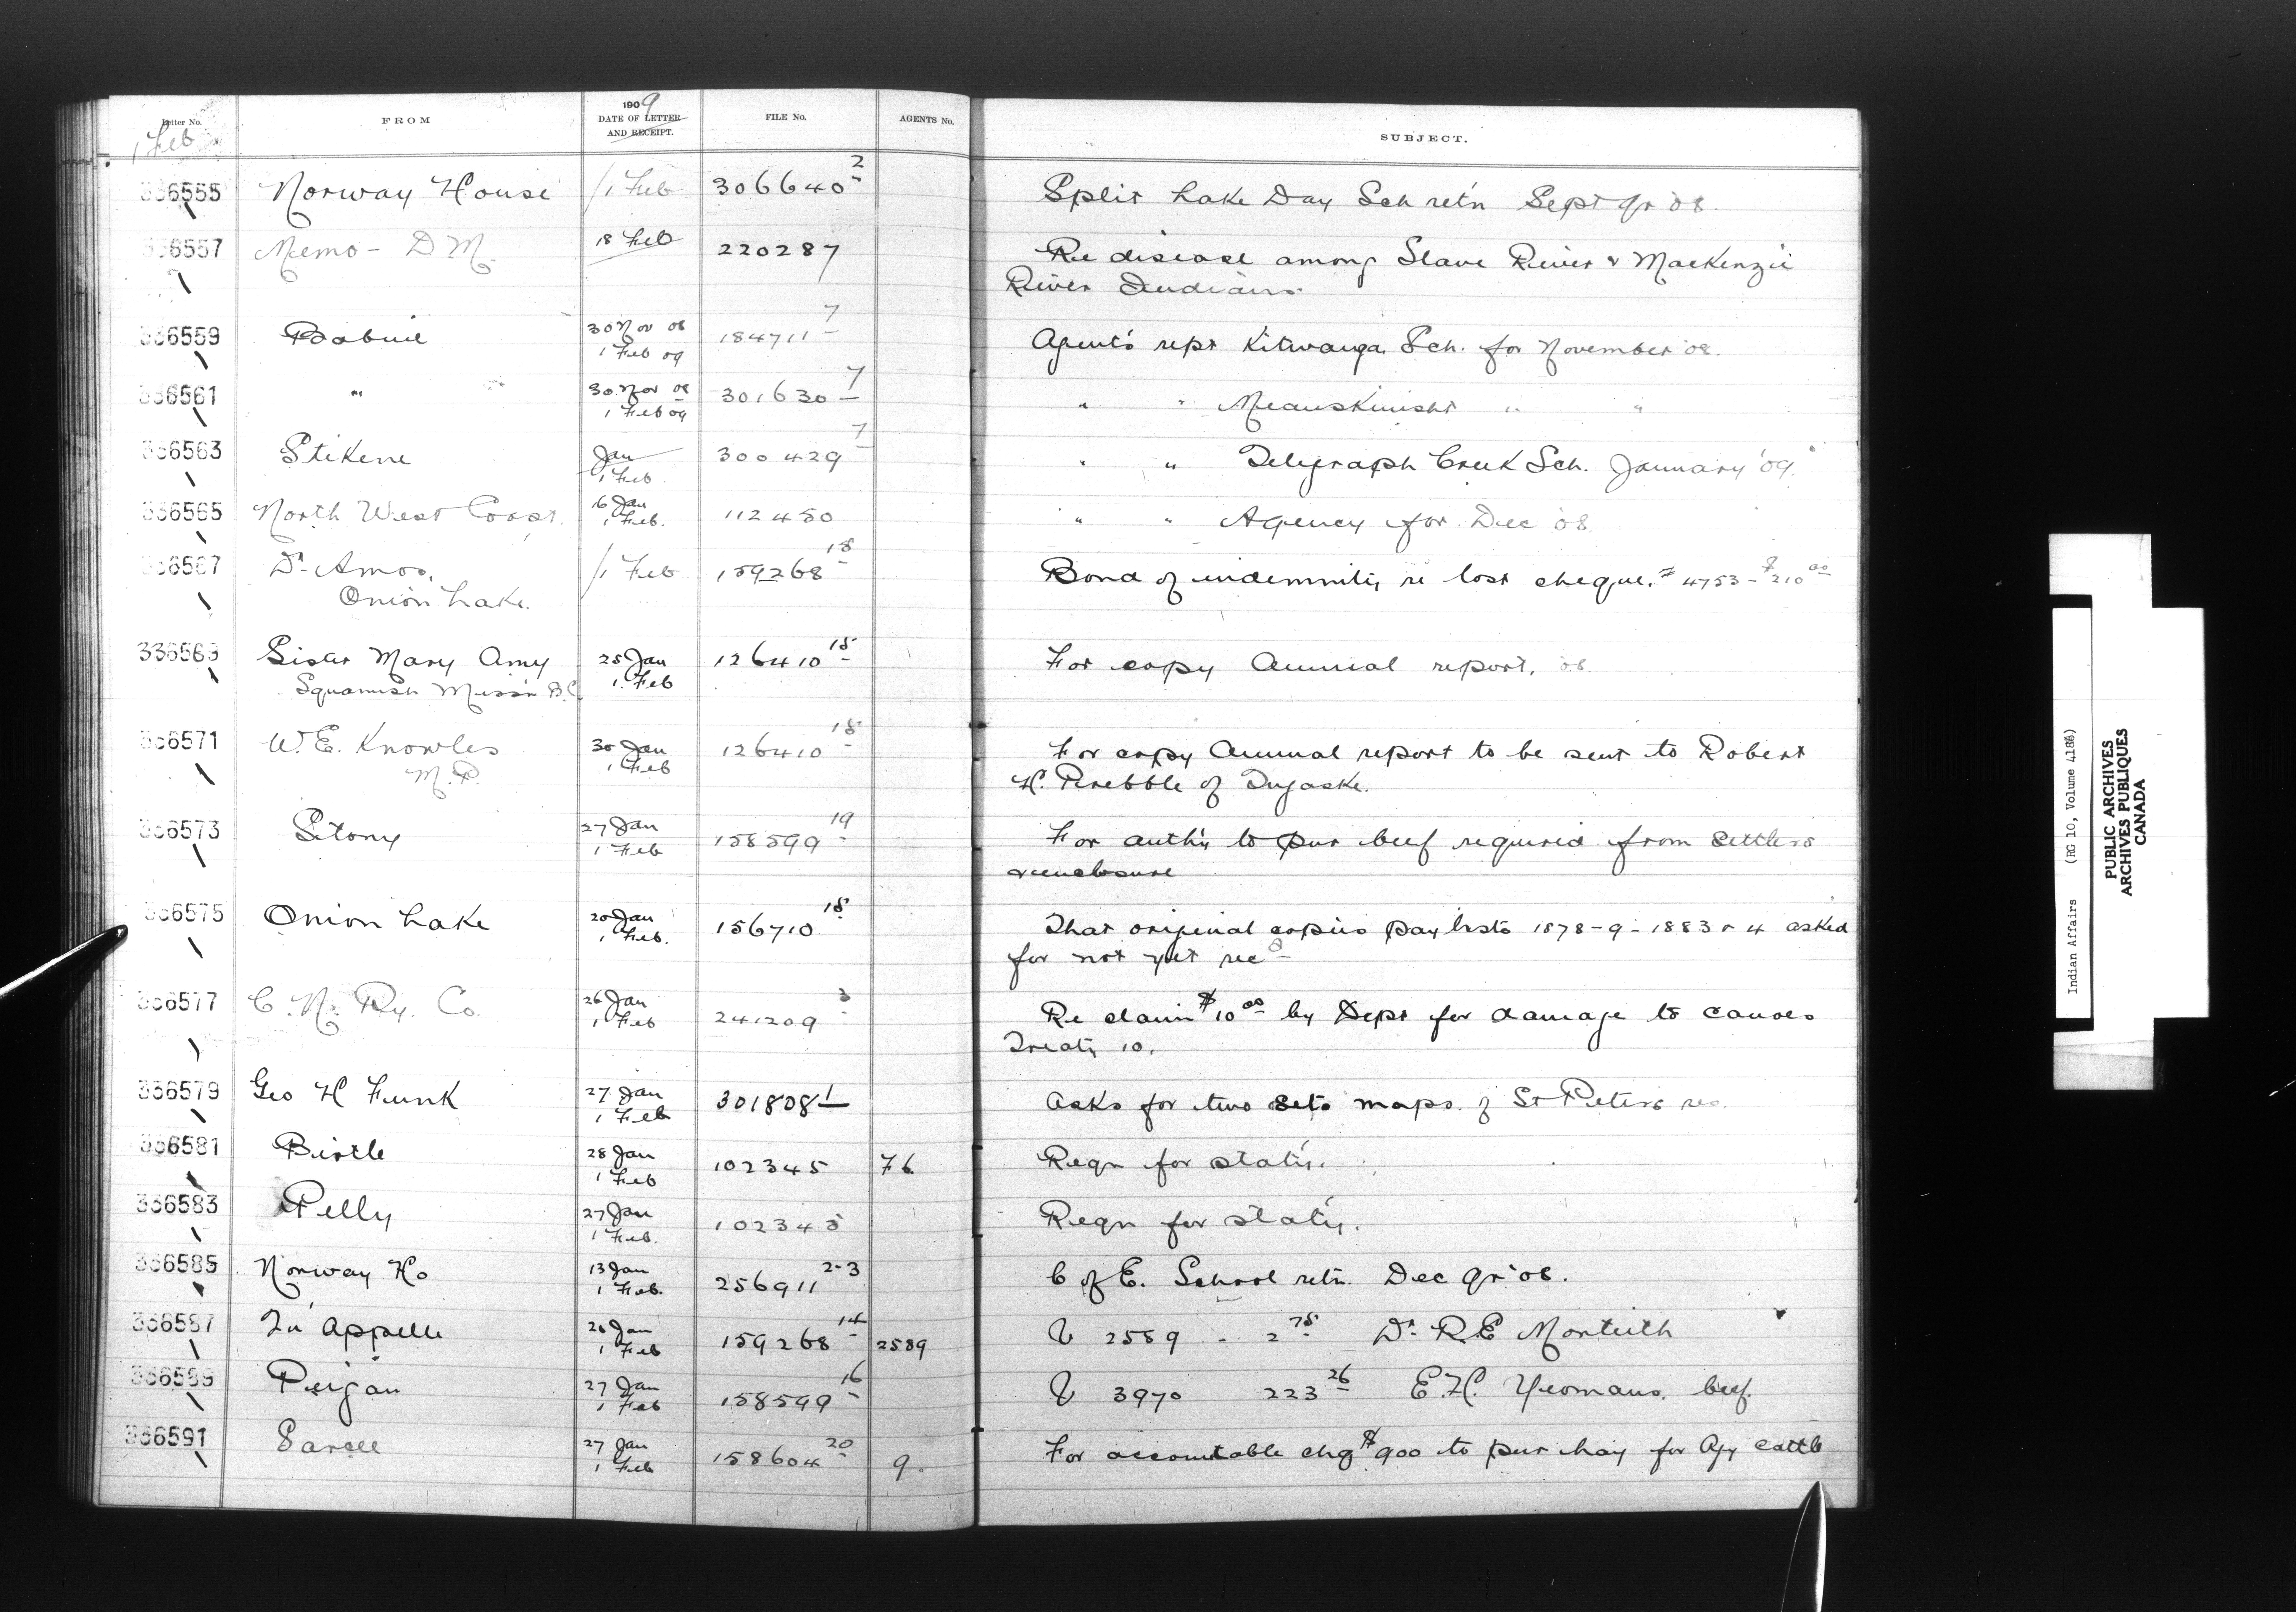 Letter No. FROM 1909 DATE OF LETTER AND RECEIPT. FILE No. AGENTS No. SUBJECT.
1 Feb
336555 Norway House 1 Feb 306640-2 Split Lake Day Sch retn Sept qr '08.
336557 Memo - D M. 18 Feb 220287 Re disease among Slave River & MacKenzie
River Indians
336559 Babine 30 Nov 08 1 Feb 09 184711-7 Agent's rept Kitwanga Sch. for November '08.
336561 " 30 Nov 08 1 Feb 09 301630-7 " " Meanskinisht " "
336563 Stikene Jan 1 Feb 300429-7 " " Telegraph Creek Sch. January '09.
336565 North West Coast. 16 Jan 1 Feb. 112450 " " Agency for Dec '08
336567 Dr. Amos, 1 Feb 159268-18 Bond of indemnity re lost cheque. # 4753 - $210 00
Onion Lake.
336569 Sister Mary Amy 25 Jan 1 Feb 126410-18 For copy Annual report, 08.
Squamish Miss'n B.C.
336571 W. E. Knowles 30 Jan 1 Feb 126410-18 For copy Annual report to be sent to Robert
M.P. H. Prebble of Tugaske.
336573 Stony 27 Jan 1 Feb 158599-19 For auth'y to pur beef required from settlers
& enclosure
336575 Onion Lake 20 Jan 1 Feb. 156710-18 That original copies paylists 1878-9-1883 & 4 asked
for not yet recd
336577 C. N. Ry. Co. 26 Jan 1 Feb 241209-3 Re claim $10 00 by Dept for damage to canoes
Treaty 10.
336579 Geo H Funk 27 Jan 1 Feb 301808-1 Asks for two sets maps of St Peters res.
336581 Birtle 28 Jan 1 Feb 102345 76 Reqn for stat'y.
336583 Pelly 27 Jan 1 Feb. 102345 Reqn for stat'y.
336585 Norway Ho 13 Jan 1 Feb. 256911 2-3 C of E. School retn. Dec qr '08.
336587 Qu'Appelle 26 Jan 1 Feb 159268-14 2589 V 2589 - 2 75 Dr. R.E Monteith
336589 Peigan 27 Jan 1 Feb 158599-16 V 3970 223 26 E.H. Yeomans. beef.
336591 Sarcee 27 Jan 1 Feb 158604-20 9. For accountable chq $900 to pur hay for Agy cattle
Indian Affairs (RG 10, Volume 4186)
PUBLIC ARCHIVES
ARCHIVES PUBLIQUES
CANADA